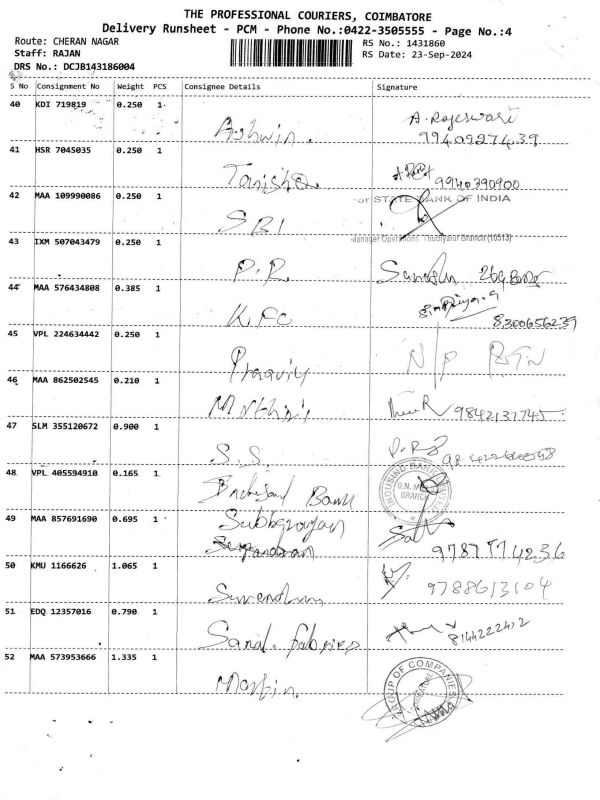 THE PROFESSIONAL COURIERS, COIMBATORE
Delivery Runsheet - PCM - Phone No.:0422-3505555 - Page No.:4
Route: CHERAN NAGAR
RS No.: 1431860
Staff: RAJAN
RS Date: 23-Sep-2024
DRS No.: DCJB143186004
S No Consignment No Weight PCS Consignee Details Signature
40 KDI 719819 0.250 1
Ashwin. A. Rajeswari
9940927439
41 HSR 7045035 0.250 1
Tanishq 9940390900
42 MAA 109990086 0.250 1
or STATE BANK OF INDIA
SBI
Manager Operations Thudiyalur Branch (10513)
43 IXM 507043479 0.250 1
P.R
44 MAA 576434808 0.385 1
KFC 8300656239
45 VPL 224634442 0.250 1
N/P RTN
46 MAA 862502545 0.210 1
9842137745
47 SLM 355120672 0.900 1
S.S.
48 VPL 405594910 0.165 1
HOUSING BANK
G.N. MILLS
BRANCH
49 MAA 857691690 0.695 1
Subbarayan
9787774236
50 KMU 1166626 1.065 1
9788613104
51 EDQ 12357016 0.790 1
Sanal fabrics 8144222412
52 MAA 573953666 1.335 1
GROUP OF COMPANIES
Martin.